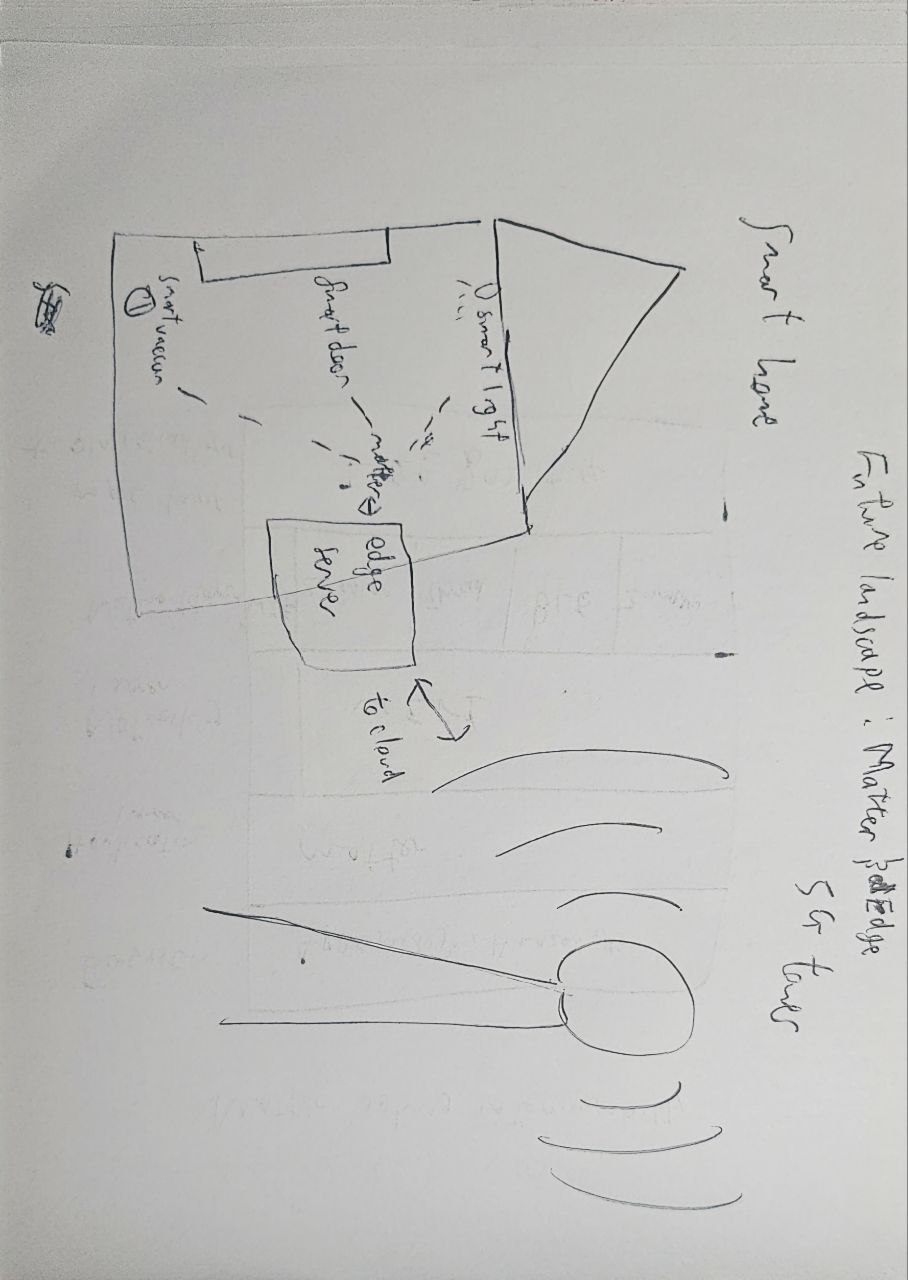 Future landscape : Matter and Edge
Smart home
5G tower
smart light
Smart door
matter
edge
server
to cloud
smart vaccum